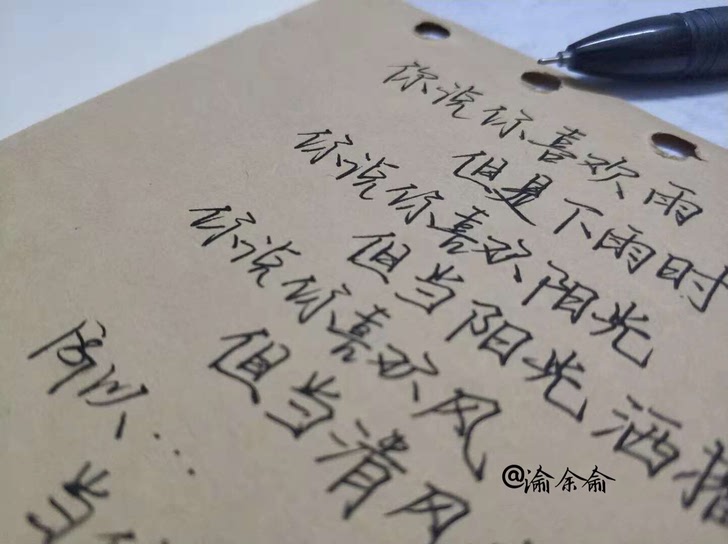 你说你喜欢雨
但是下雨时
你说你喜欢阳光
但当阳光洒播
你说你喜欢风
但当清风
所以...
当
@渝余俞